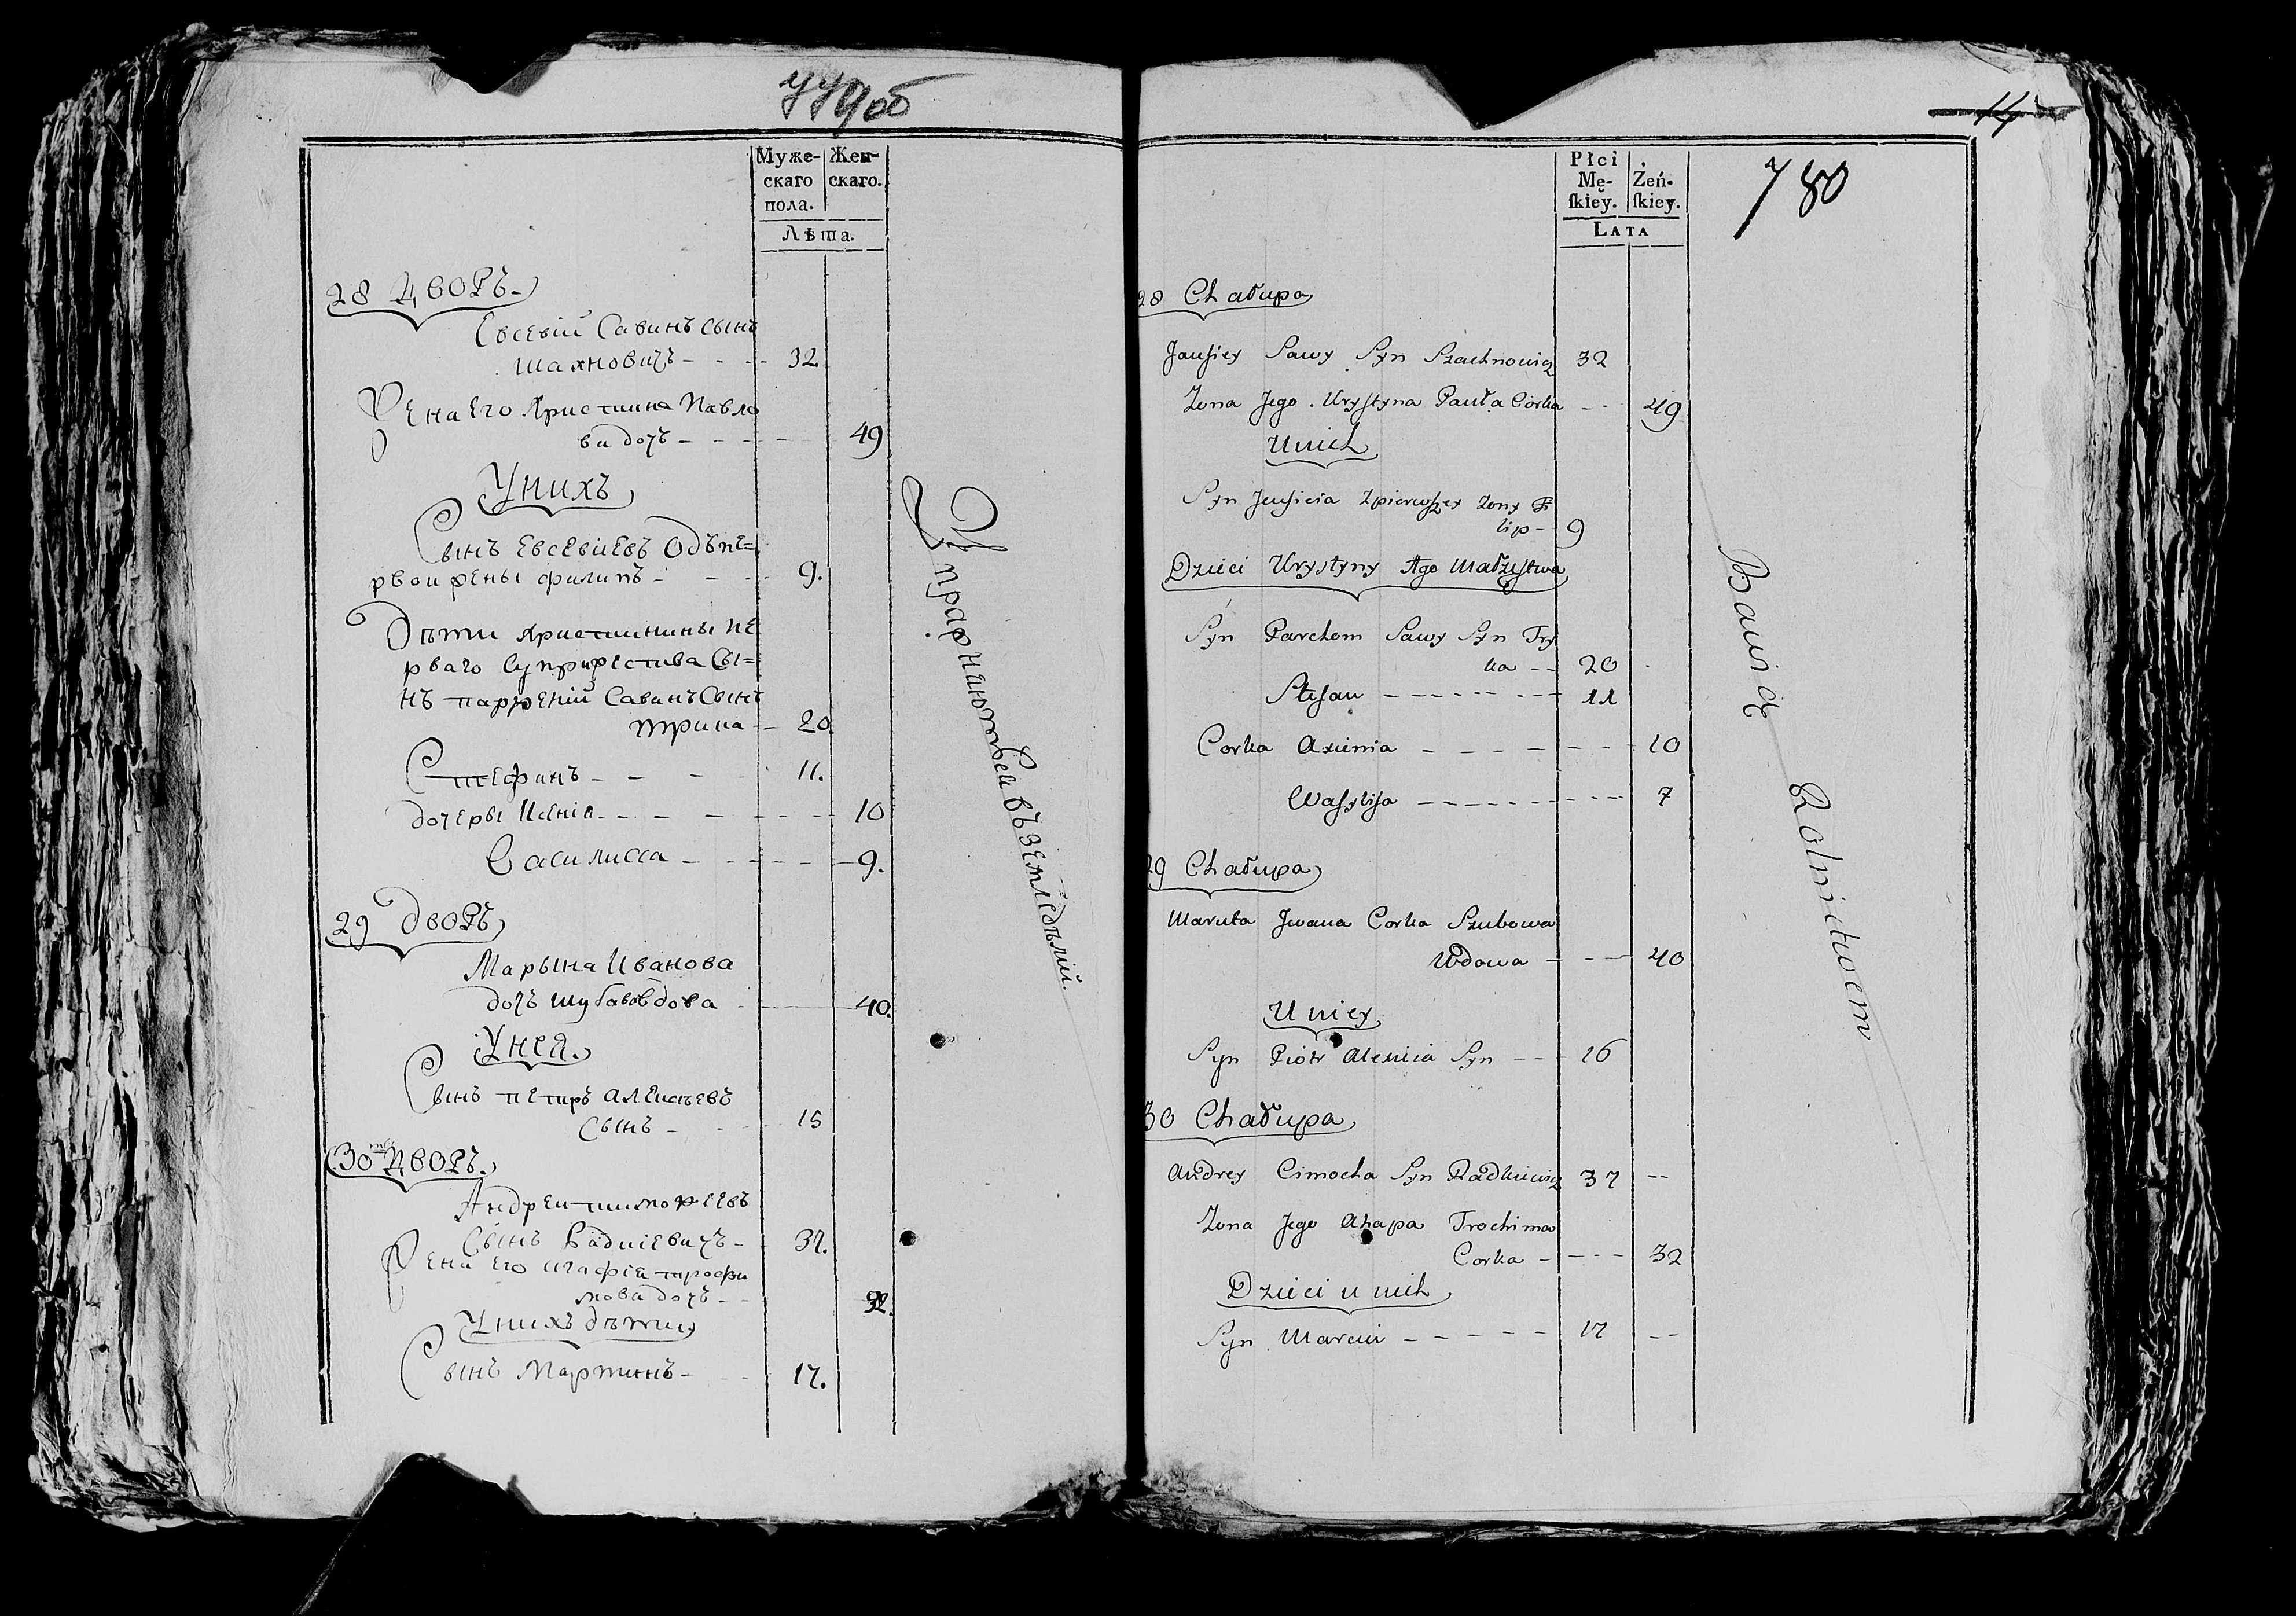 779об
Муже- Жен-
скаго скаго.
пола.
Лѣта.
28 Дворъ.
Евсевій Савинъ сынъ
Шахновичъ - - - 32
Жена Его Христина Павло
ва дочь - - - - - 49
У нихъ
Сынъ Евсевіевъ Одъ пе=
рвои жены Филипъ - - - 9.
Дѣти Христинины пе
рваго Супружества Сы=
нъ Пархеній Савинъ Сынъ
- - 20.
Стефанъ - - - 11.
дочери Ксенія - - - - - 10
Василисса - - - - - 9.
29 Дворъ
Марына Иванова
дочь Шубавовдова - 40.
У нея.
Сынъ Петръ Алексѣевъ
Сынъ - - 15
30то Дворъ.
Андреи Тимофеевъ
Сынъ Радкевичъ - 37.
Жена Его Агафія Трофи
мова дочь - - 32.
У нихъ дѣти
Сынъ Мартинъ - - 17.
Упражняются въ земледѣлій.
14
780
Płci
Mę- Żeń-
skiey. skiey.
LATA
28 Chałupa
Jausiey Sawy Syn Szachnowicz 32
Zona Jego Krystyna Pawła Corka - - 49
U nich
Syn Jewsieia z pierwszey Zony Fi
lip - 9
Dzieci Krystyny 1go Małżestwa
Syn Parchom Sawy Syn Try
ka - - 20
Stefan - - - - - - - 11
Corka Axienia - - - - - - - 10
Wasylisa - - - - - - - - - 7
29 Chałupa
Maruta Jwana Corka Szubowa
Wdowa - - - - 40
U niey
Syn Piotr Alexieia Syn - - - 16
30 Chałupa
Andrey Cimocha Syn Radkiewicz 37 - -
Zona Jego Ahapa Trochima
Corka - - - - 32
Dzieci u nich
Syn Marcin - - - - - 17 - -
Bawią Rolnictwem